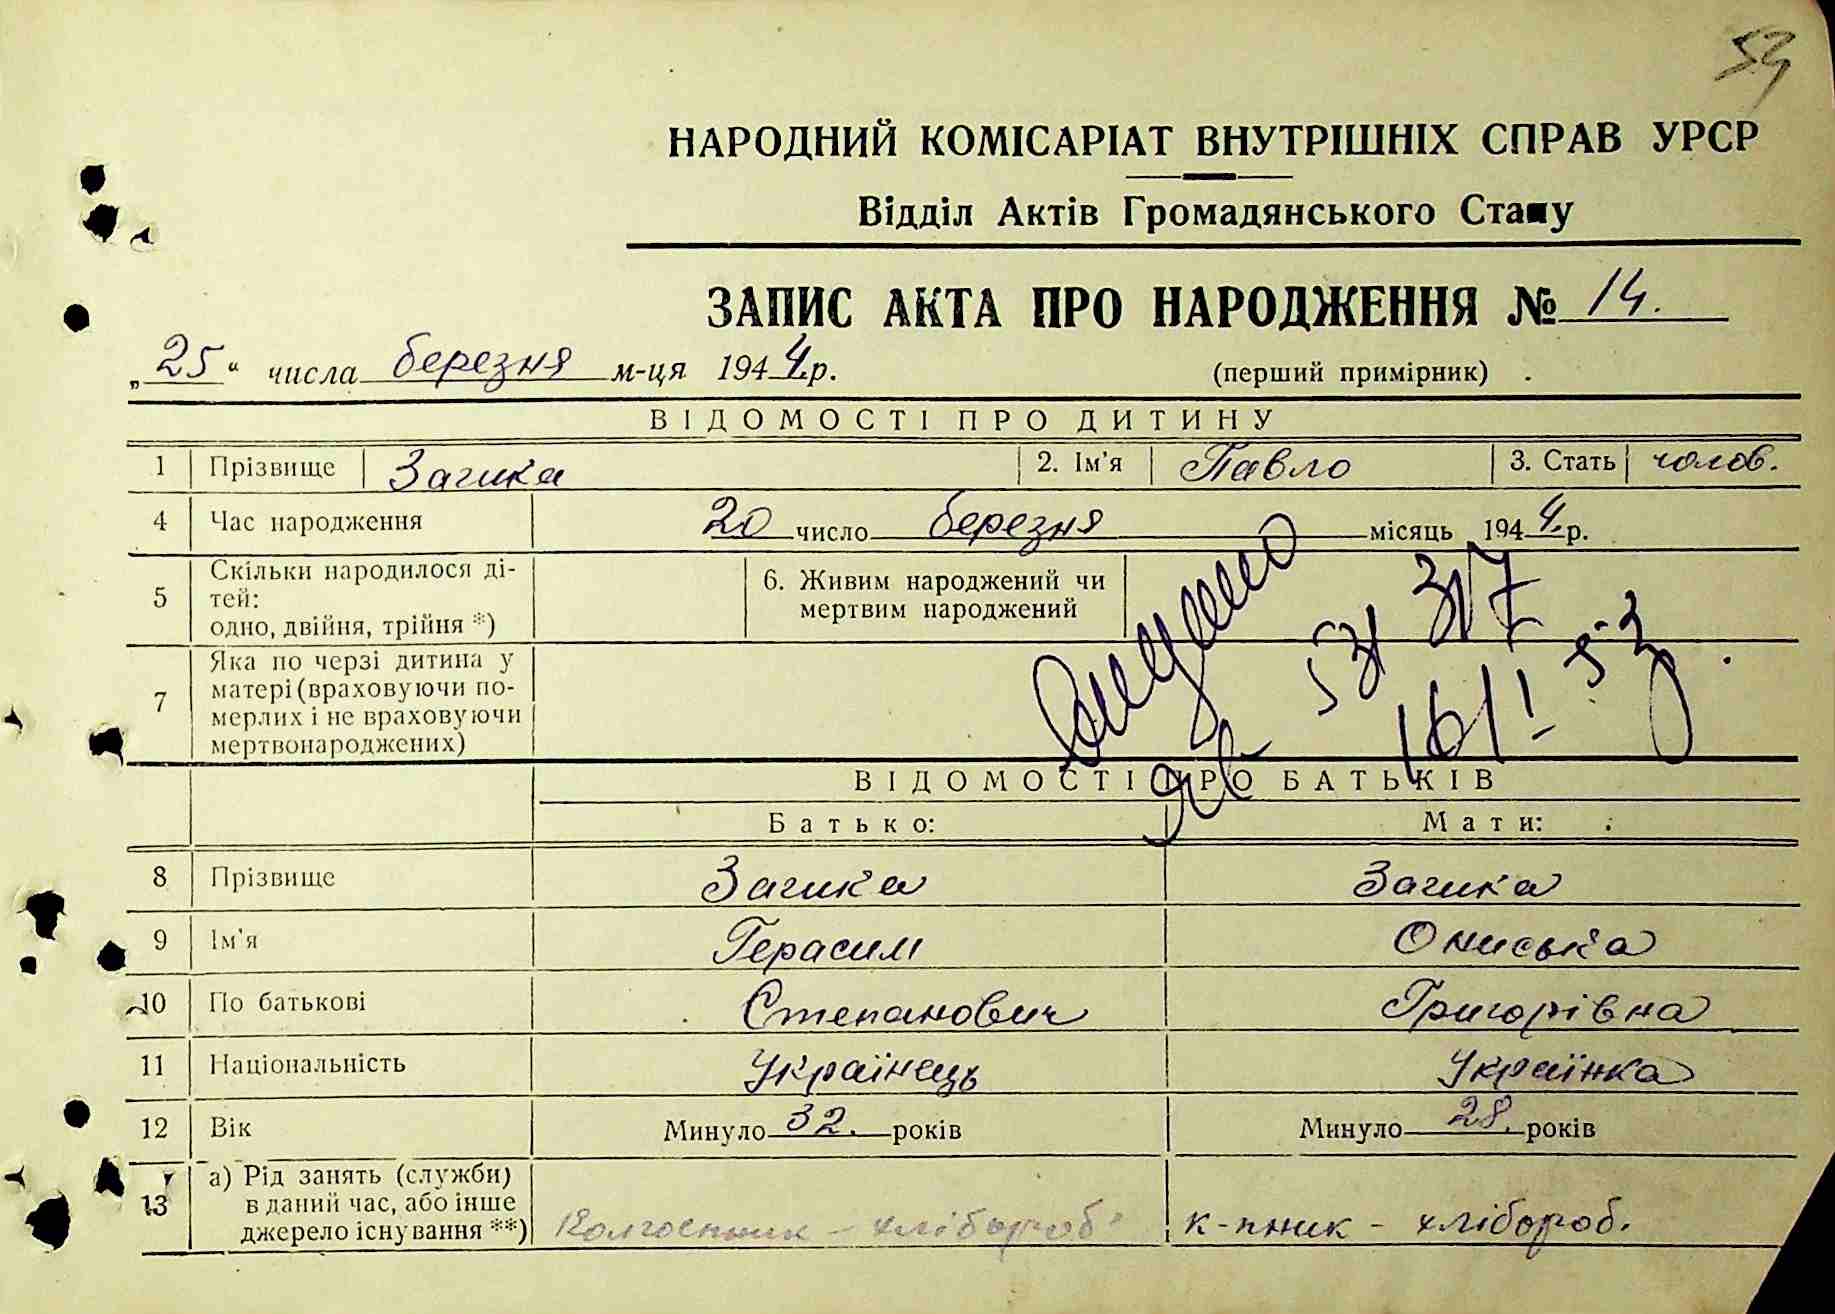 54
НАРОДНИЙ КОМІСАРІАТ ВНУТРІШНІХ СПРАВ УРСР
Відділ Актів Громадянського Стану
ЗАПИС АКТА ПРО НАРОДЖЕННЯ № 14.
„25" числа березня м-ця 1944 р. (перший примірник)
ВІДОМОСТІ ПРО ДИТИНУ
1 Прізвище Загика 2. Ім'я Павло 3. Стать чолов.
4 Час народження 20 число березня місяць 1944 р.
5 Скільки народилося ді-
тей:
одно, двійня, трійня *)
6. Живим народжений чи
мертвим народжений
7 Яка по черзі дитина у
матері (враховуючи по-
мерлих і не враховуючи
мертвонароджених)
ВІДОМОСТІ ПРО БАТЬКІВ
Батько: Мати:
8 Прізвище Загика Загика
9 Ім'я Герасим Ониська
10 По батькові Степанович Григорівна
11 Національність Українець Українка
12 Вік Минуло 32. років Минуло 28. років
13 а) Рід занять (служби)
в даний час, або інше
джерело існування **)
Колгоспник - хлібороб. к-пник - хлібороб.